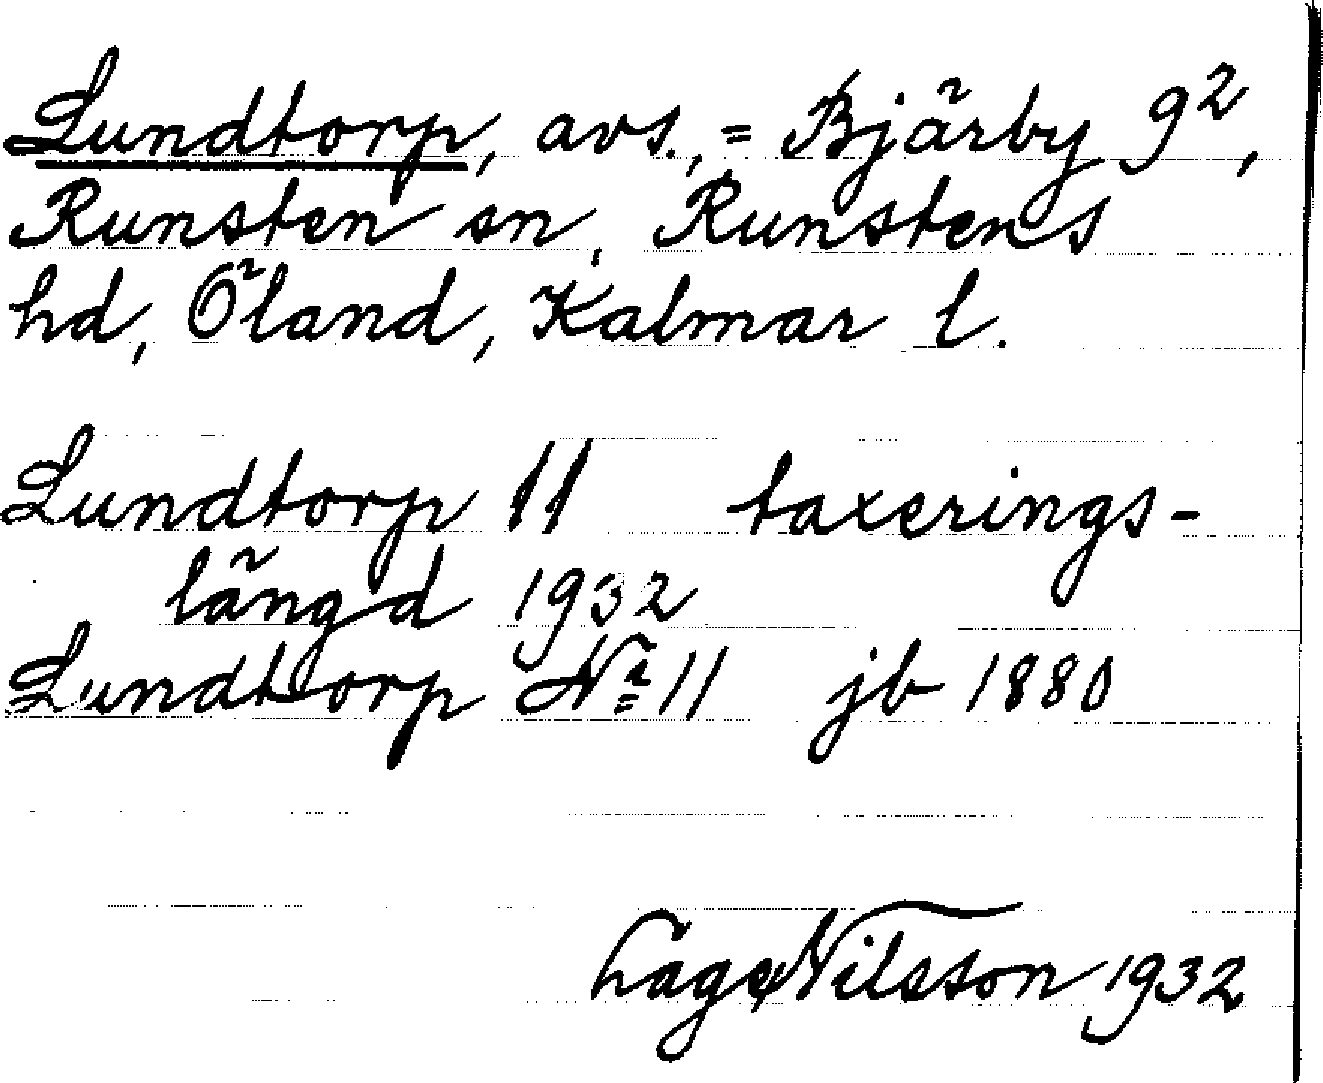 Lundtorp, avs., = Bjärby 9²,
Runsten sn, Runstens
hd, Öland, Kalmar l.
Lundtorp 11 taxerings-
längd 1932
Lundtorp No 11 jb 1880
Lage Nilsson 1932